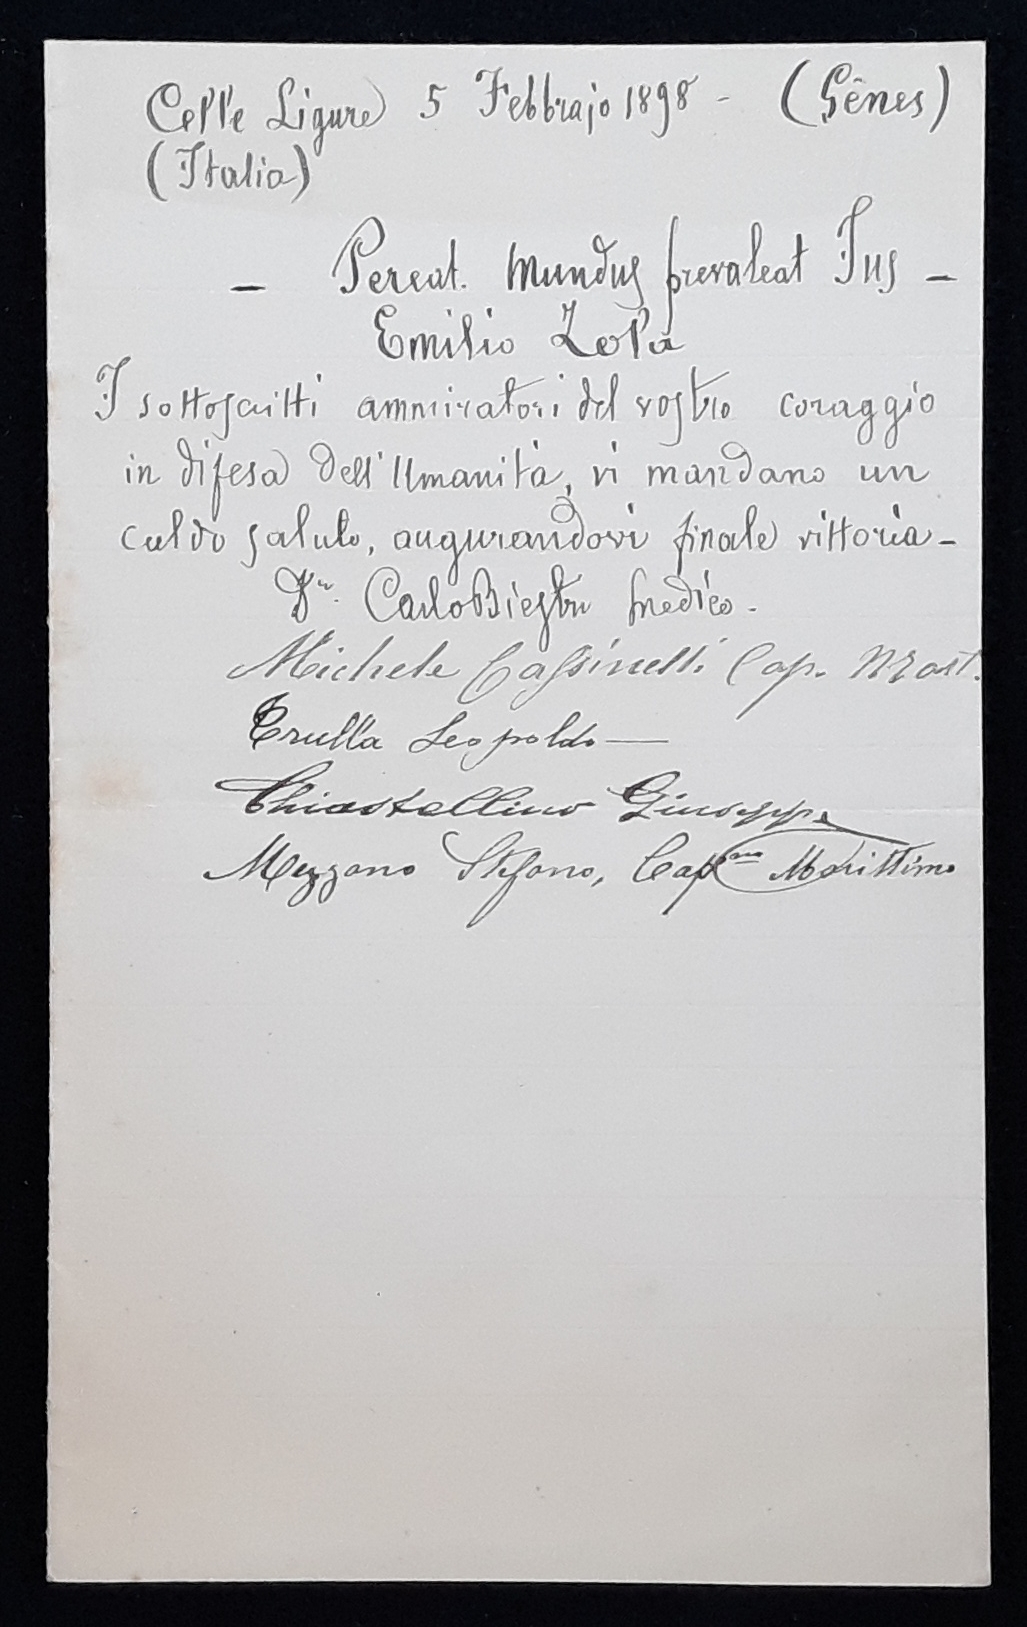 Celle Ligure 5 Febbrajo 1898 - (Gênes)
(Italia)
- Pereat. Mundus prevaleat Jus -
Emilio Zola
I sottoscritti ammiratori del vostro coraggio
in difesa dell'Umanità, vi mandano un
caldo saluto, augurandovi finale vittoria -
Dr. Carlo Biestra medico -
Michele Cassinelli Cap.
Leopoldo
Chiastellino Giuseppe
Mezzano Stefano, Capno Marittimo